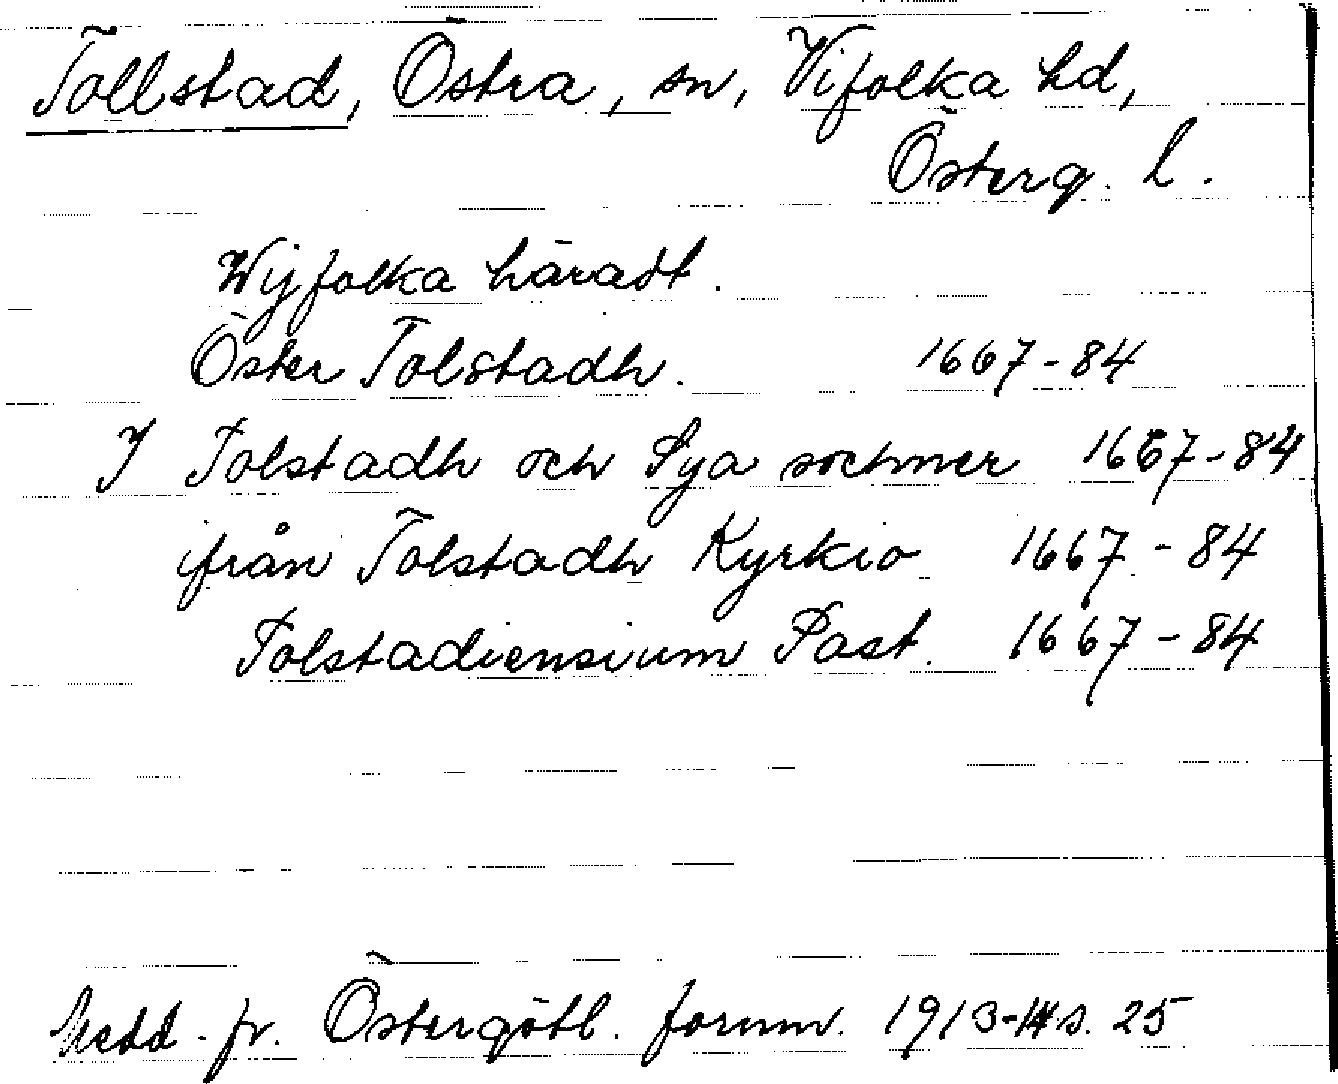 Tollstad, Östra, sn, Vifolka hd,
Österg. l.
Wijfolka häradt.
Öster Tolstadh. 1667-84
J Tolstadh och Sya sochner 1667-84
ifrån Tolstadh Kyrkio 1667-84
Tolstadiensium Past. 1667-84
Medd. fr. Östergötl. fornm. 1913-14 s. 25